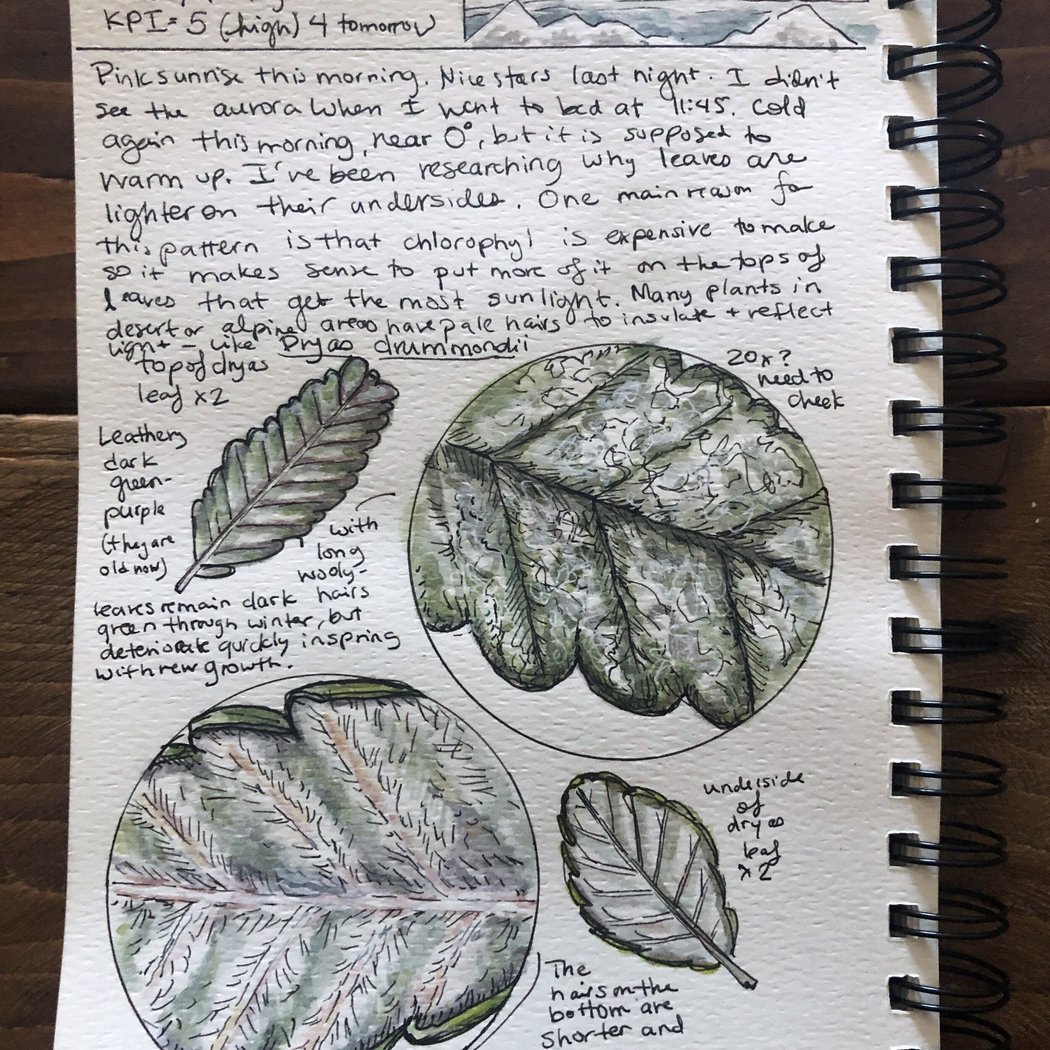 KPI = 5 (high) 4 tomorrow
Pink sunrise this morning. Nice stars last night. I didn't
see the aurora when I went to bed at 11:45. Cold
again this morning, near 0°, but it is supposed to
warm up. I've been researching why leaves are
lighter on their undersides. One main reason for
this pattern is that chlorophyl is expensive to make
so it makes sense to put more of it on the tops of
leaves that get the most sunlight. Many plants in
desert or alpine areas have pale hairs to insulate + reflect
light - like Dryas drummondii
top of dryas
leaf x2
20x?
need to
check
Leathery
dark
green-
purple
(they are
old now)
with
long
wooly-
hairs
leaves remain dark
green through winter, but
deteriorate quickly in spring
with new growth.
underside
of
dryas
leaf
x2
The
hairs on the
bottom are
shorter and